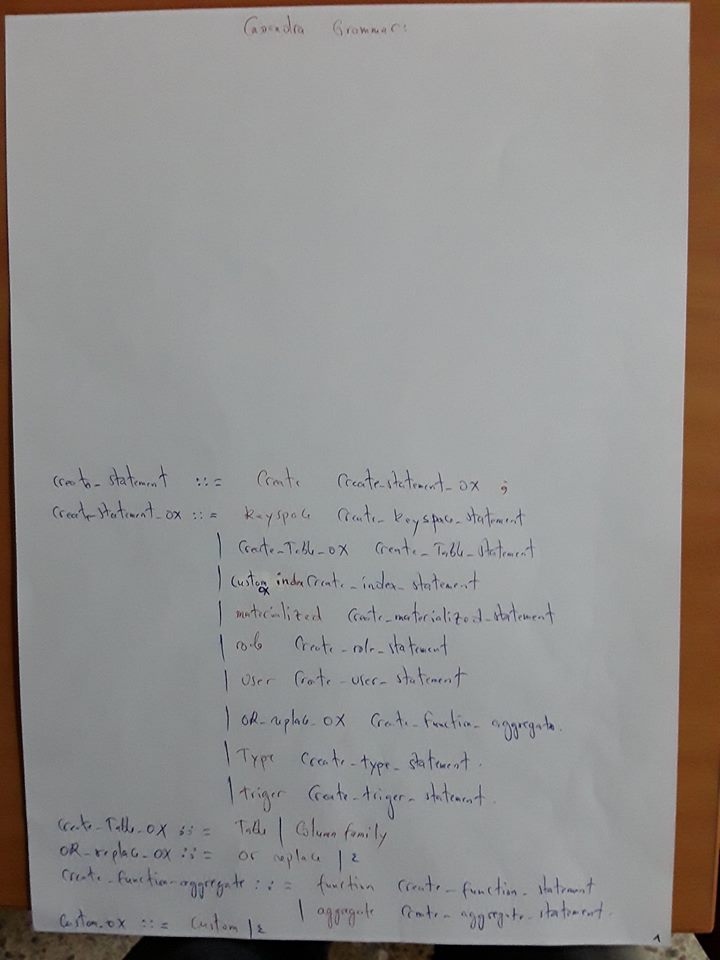 Cassendra Grammar:
Create_statement ::= Create Create_statement_OX ;
Create_statement_OX ::= Keyspace Create_keyspace_statement
| Create_Table_OX Create_Table_statement
| Custom_OX index Create_index_statement
| materialized Create_materialized_statement
| role Create_role_statement
| User Create_user_statement
| OR_replace_OX Create_function_aggregate.
| Type Create_type_statement.
| triger Create_triger_statement.
Create_Table_OX ::= Table | Column family
OR_replace_OX ::= or replace | ε
Create_function_aggregate ::= function Create_function_statement
| aggregate Create_aggregate_statement.
Custom_OX ::= Custom | ε
1